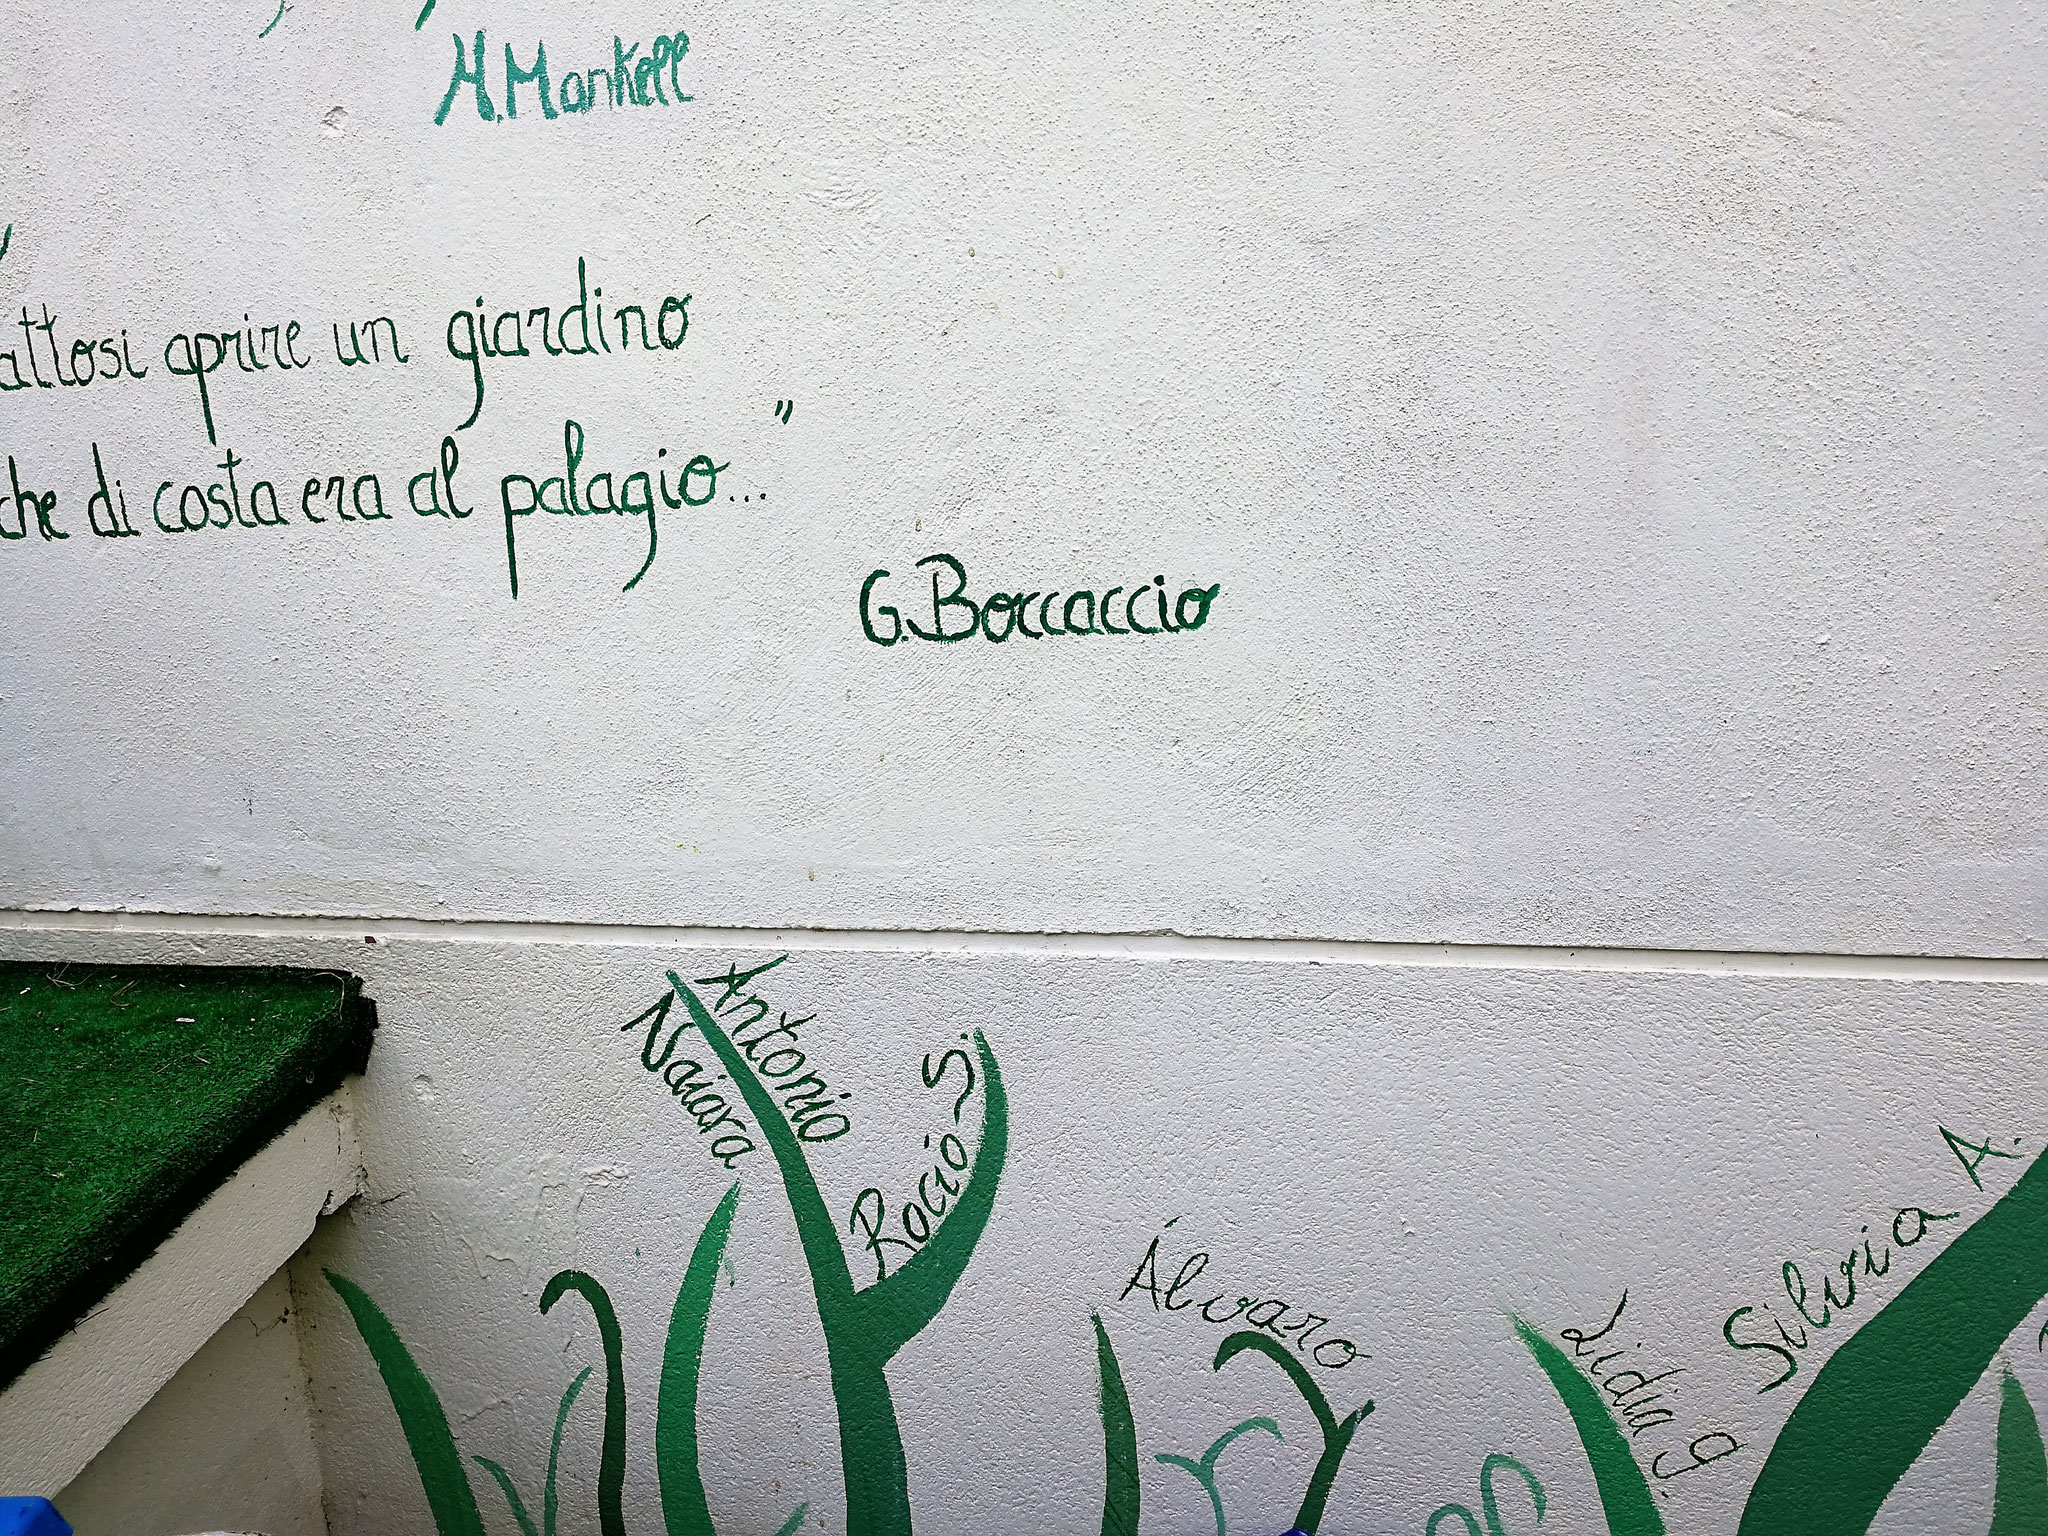 H. Mankell
attosi aprire un giardino
che di costa era al palagio..."
G. Boccaccio
Antonio
Naiara
Rocio S.
Álvaro
Lidia g.
Silvia A.